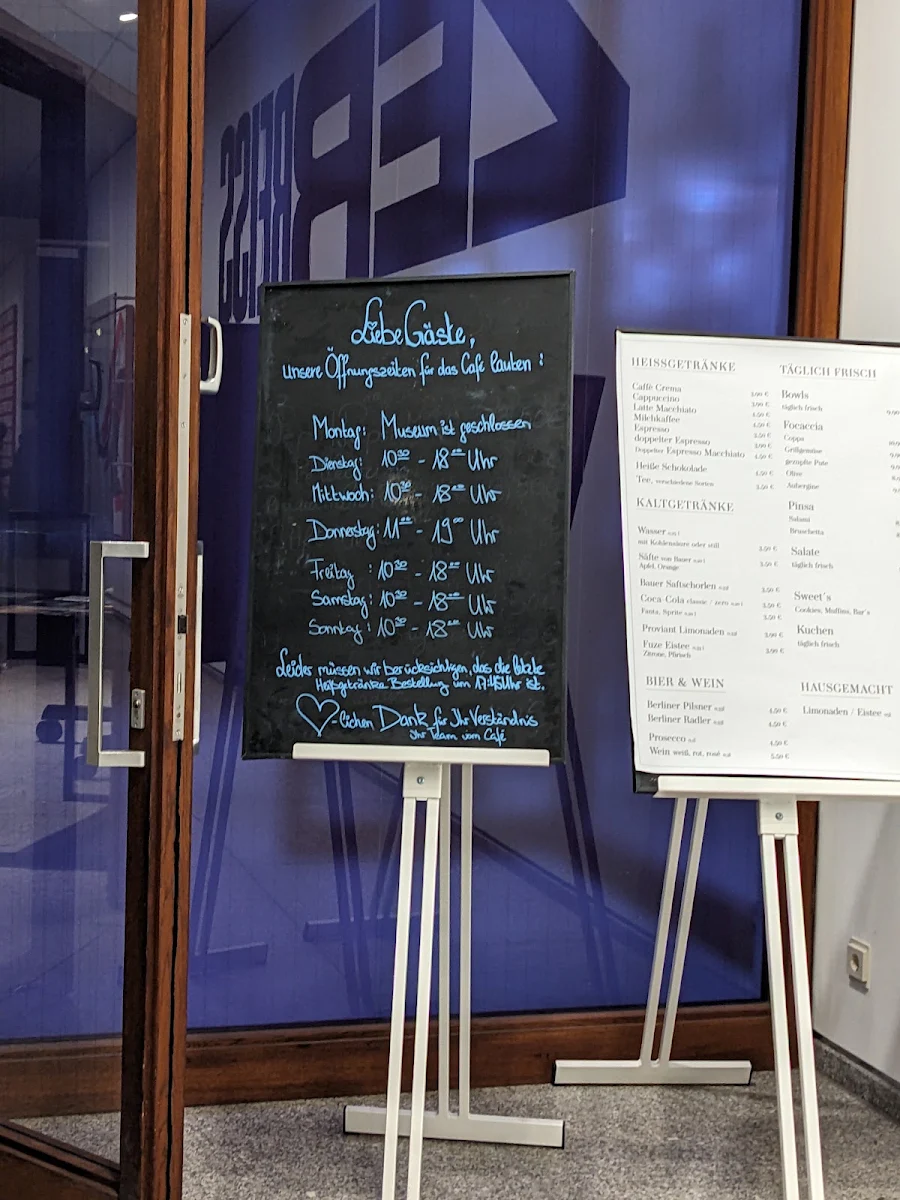 Liebe Gäste,
unsere Öffnungszeiten für das Café lauten :
Montag: Museum ist geschlossen
Dienstag: 10³⁰ - 18⁰⁰ Uhr
Mittwoch: 10³⁰ - 18⁰⁰ Uhr
Donnerstag: 11⁰⁰ - 19⁰⁰ Uhr
Freitag : 10³⁰ - 18⁰⁰ Uhr
Samstag : 10³⁰ - 18⁰⁰ Uhr
Sonntag : 10³⁰ - 18⁰⁰ Uhr
Leider müssen wir berücksichtigen, das die letzte
Heißgetränke Bestellung um 17:45 Uhr ist.
♡-lichen Dank für Ihr Verständnis
Ihr Team vom Café
HEISSGETRÄNKE
Caffè Crema
Cappuccino
Latte Macchiato
Milchkaffee
Espresso
doppelter Espresso
Doppelter Espresso Macchiato
Heiße Schokolade
Tee, verschiedene Sorten
KALTGETRÄNKE
Wasser
mit Kohlensäure oder still
Säfte von Bauer
Apfel, Orange
Bauer Saftschorlen
Coca-Cola classic / zero
Fanta, Sprite
Proviant Limonaden
Fuze Eistee
Zitrone, Pfirsich
BIER & WEIN
Berliner Pilsner 4,50 €
Berliner Radler 4,50 €
Prosecco 4,50 €
Wein weiß, rot, rosé 5,50 €
TÄGLICH FRISCH
Bowls
täglich frisch
Focaccia
Coppa
Grillgemüse
gezupfte Pute
Olive
Aubergine
Pinsa
Salami
Bruschetta
Salate
täglich frisch
Sweet´s
Cookies, Muffins, Bar´s
Kuchen
täglich frisch
HAUSGEMACHT
Limonaden / Eistee